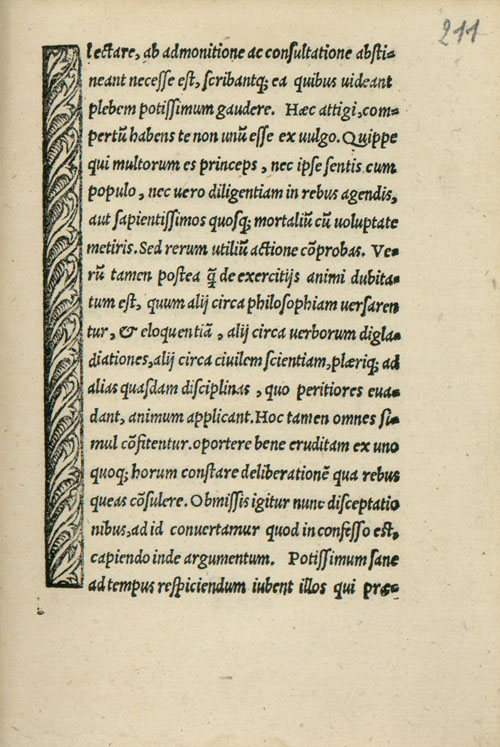 211
lectare, ab admonitione ac consultatione absti-
neant necesse est, scribantq; ea quibus uideant
plebem potissimum gaudere. Hæc attigi, com-
pertũ habens te non unũ esse ex uulgo. Quippe
qui multorum es princeps, nec ipse sentis cum
populo, nec uero diligentiam in rebus agendis,
aut sapientissimos quosq; mortaliũ cũ uoluptate
metiris. Sed rerum utiliũ actione cõprobas. Ve-
rũ tamen postea q̃ de exercitijs animi dubita-
tum est, quum alij circa philosophiam uersaren
tur, & eloquentiã, alij circa uerborum digla-
diationes, alij circa ciuilem scientiam, plæriq; ad
alias quasdam disciplinas, quo peritiores eua-
dant, animum applicant. Hoc tamen omnes si-
mul cõfitentur. oportere bene eruditam ex uno
quoq; horum constare deliberationẽ qua rebus
queas cõsulere. Obmissis igitur nunc disceptatio
nibus, ad id conuertamur quod in confesso est,
capiendo inde argumentum. Potissimum sane
ad tempus respiciendum iubent illos qui præ-